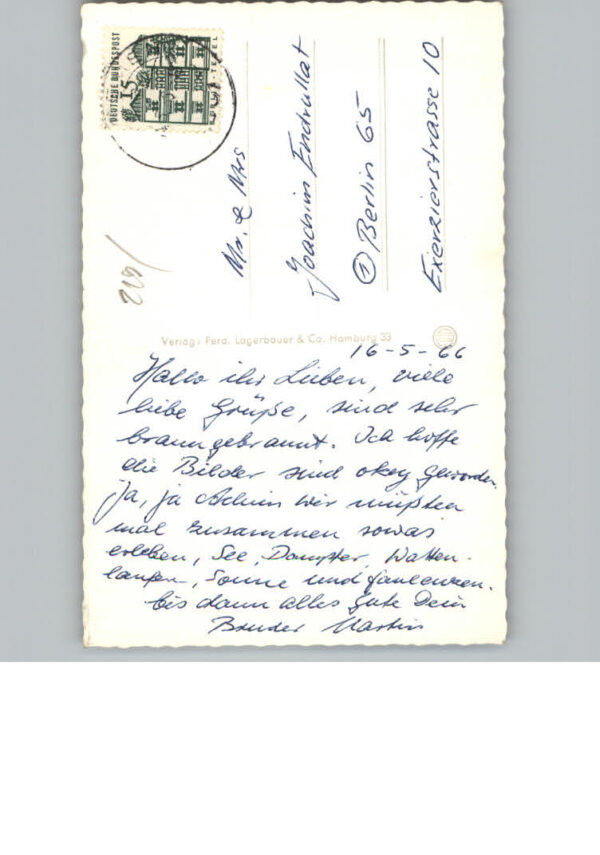 DEUTSCHE BUNDESPOST
15
TEGEL
Mr. & Mrs
Joachim Endrullat
① Berlin 65
Exerzierstrasse 10
Verlag: Ferd. Lagerbauer & Co. Hamburg 33
16-5-66
Hallo ihr Lieben, viele
liebe Grüße, sind sehr
braungebrannt. Ich hoffe
die Bilder sind okey geworden.
Ja, ja Achim wir müßten
mal zusammen sowas
erleben, See, Dampfer, Watten-
laufen, Sonne und faulenzen.
bis dann alles gute Dein
Bruder Martin